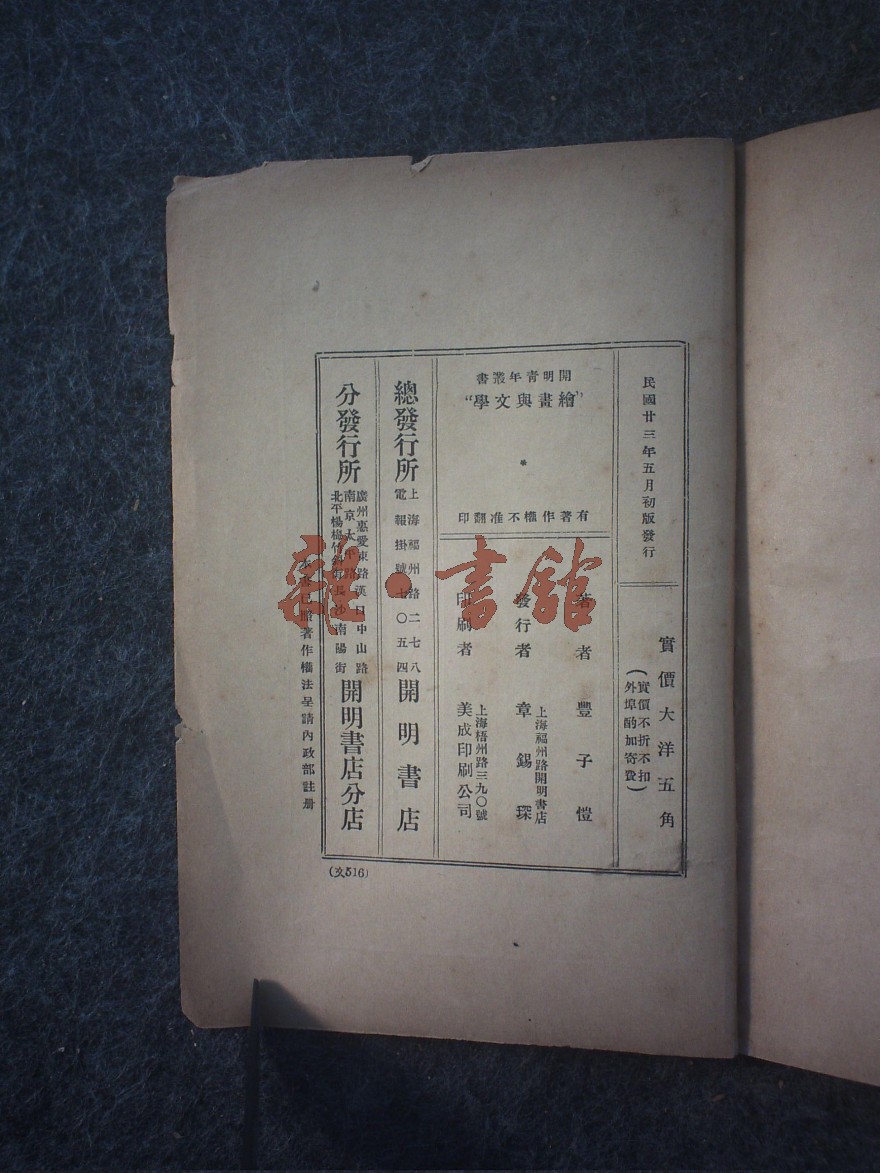 民國廿三年五月初版發行
實價大洋五角
（實價不折不扣
外埠酌加寄費）
開明青年叢書
“繪畫與文學”
*
有著作權不准翻印
著者 豐子愷
發行者 章錫琛
上海福州路開明書店
印刷者 美成印刷公司
上海梧州路三九〇號
總發行所 開明書店
上海福州路二七八
電報掛號七〇五四
分發行所 開明書店分店
廣州惠愛東路 漢口中山路
南京太平路 長沙南陽街
北平楊梅竹斜街
本書已照著作權法呈請內政部註册
(文516)
雜·書館